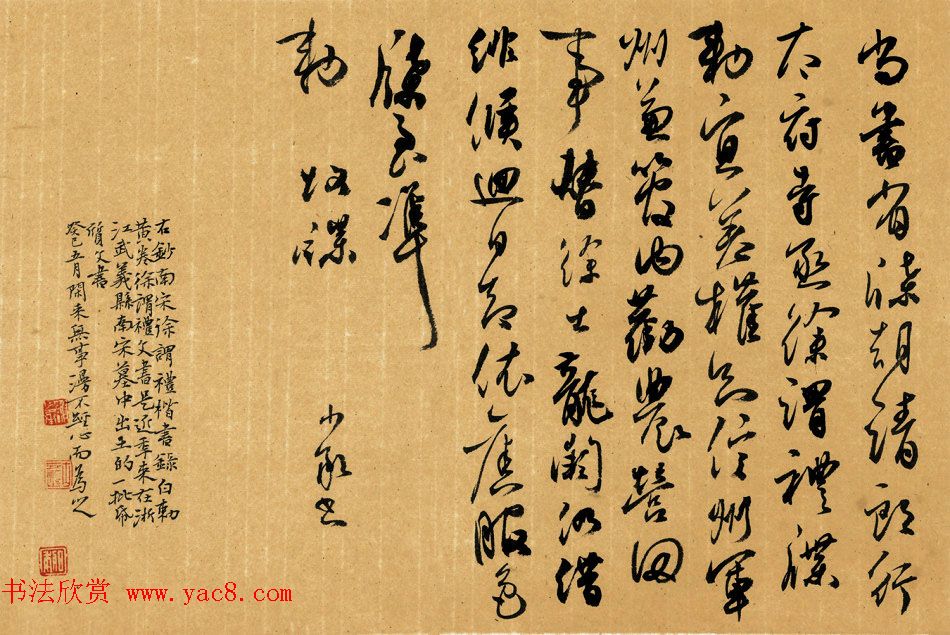 尚書省牒朝請郎行
太府寺丞徐謂禮牒
敕宣差權知信州軍
州兼管內勸農營田
事替徐士龍闕仍借
緋候迴日却依舊服色
牒至準
敕故牒
右鈔南宋徐謂禮楷書錄白敕
黃卷徐謂禮文書是近年來在浙
江武義縣南宋墓中出土的一批紙
質文書
癸巳五月閑來無事漫不經心而為之
书法欣赏 www.yac8.com